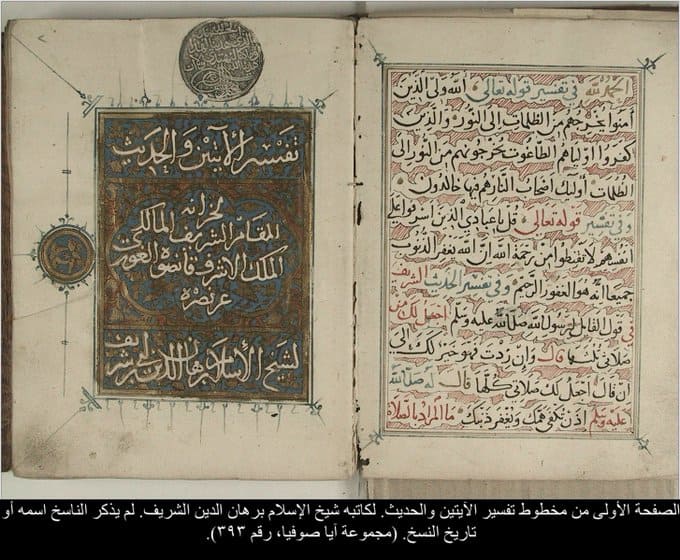 الحمد لله في تفسير قوله تعالى الله ولي الذين
آمنوا يخرجهم من الظلمات الى النور والذين
كفروا اولياهم الطاغوت يخرجونهم من النور الى
الظلمات اولئك اصحاب النار هم فيها خالدون
وفي تفسير قوله تعالى قل يا عبادي الذين اسرفوا على
انفسهم لا تقنطوا من رحمة الله ان الله يغفر الذنوب
جميعا انه هو الغفور الرحيم وفي تفسير الحديث الشريف
في قول القائل لرسول الله صلى الله عليه وسلم اجعل لك من
صلاتي ثلثها قال وان زدت فهو خير لك الى
ان قال اجعل لك صلاتي كلها قال له صلى الله
عليه وسلم اذن تكفى همك ويغفر ذنبك ما المراد بالصلاة
تفسير الآيتين والحديث
المقام الشريف المالكي
الملك الاشرف قانصوه الغوري
عز نصره
لشيخ الاسلام برهان الدين ابن ابي شريف
الصفحة الأولى من مخطوط تفسير الآيتين والحديث. لكاتبه شيخ الإسلام برهان الدين الشريف. لم يذكر الناسخ اسمه أو
تاريخ النسخ. (مجموعة آيا صوفيا، رقم ٣٩٣).